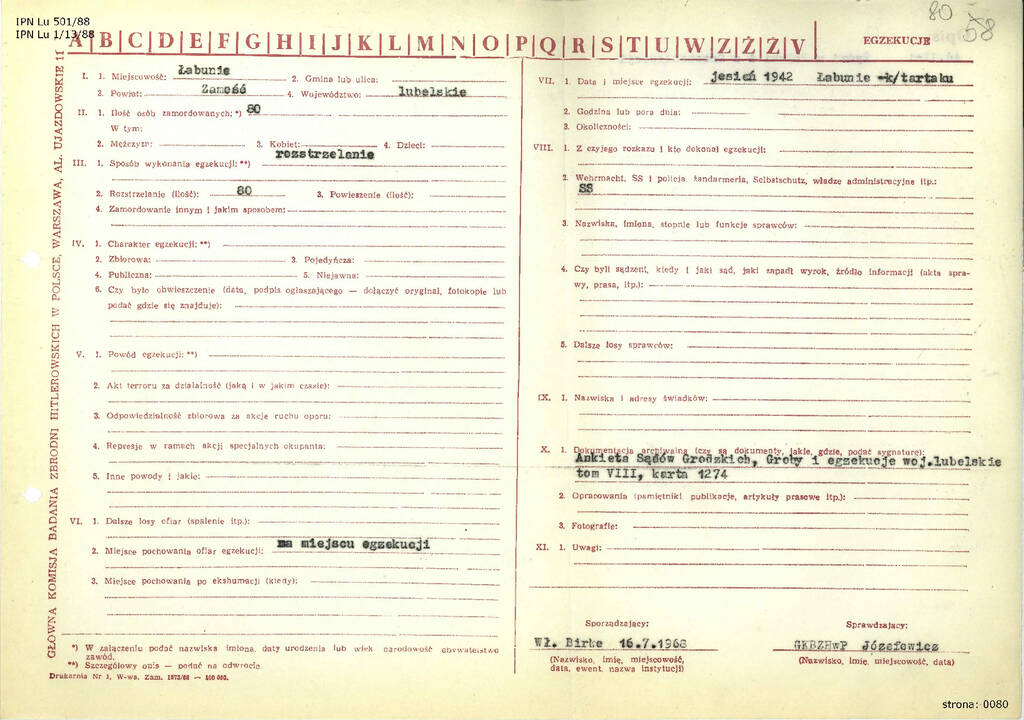 IPN Lu 501/88
IPN Lu 1/13/88
80
58
A|B|C|D|E|F|G|H|I|J|K|L|M|N|O|P|Q|R|S|T|U|W|Z|Ż|Ź|V
EGZEKUCJE
GŁÓWNA KOMISJA BADANIA ZBRODNI HITLEROWSKICH W POLSCE, WARSZAWA, AL. UJAZDOWSKIE 11
I. 1. Miejscowość: Łabunie 2. Gmina lub ulica:
3. Powiat: Zamość 4. Województwo: lubelskie
II. 1. Ilość osób zamordowanych: *) 80
W tym:
2. Mężczyzn: 3. Kobiet: 4. Dzieci:
III. 1. Sposób wykonania egzekucji: **) rozstrzelanie
2. Rozstrzelanie (ilość): 80 3. Powieszenie (ilość):
4. Zamordowanie innym i jakim sposobem:
IV. 1. Charakter egzekucji: **)
2. Zbiorowa: 3. Pojedyńcza:
4. Publiczna: 5. Niejawna:
6. Czy było obwieszczenie (data, podpis ogłaszającego — dołączyć oryginał, fotokopie lub
podać gdzie się znajduje):
V. 1. Powód egzekucji: **)
2. Akt terroru za działalność (jaką i w jakim czasie):
3. Odpowiedzialność zbiorowa za akcje ruchu oporu:
4. Represje w ramach akcji specjalnych okupanta:
5. Inne powody i jakie:
VI. 1. Dalsze losy ofiar (spalenie itp.):
2. Miejsce pochowania ofiar egzekucji: na miejscu egzekucji
3. Miejsce pochowania po ekshumacji (kiedy):
*) W załączeniu podać nazwiska imiona, daty urodzenia lub wiek narodowość obywatelstwo
zawód.
**) Szczegółowy opis — podać na odwrocie.
Drukarnia Nr 1, W-wa. Zam. 1573/68 — 100 000.
VII. 1. Data i miejsce egzekucji: jesień 1942 Łabunie -k/tartaku
2. Godzina lub pora dnia:
3. Okoliczności:
VIII. 1. Z czyjego rozkazu i kto dokonał egzekucji:
2. Wehrmacht, SS i policja, żandarmeria, Selbstschutz, władze administracyjne itp.:
SS
3. Nazwiska, imiona, stopnie lub funkcje sprawców:
4. Czy byli sądzeni, kiedy i jaki sąd, jaki zapadł wyrok, źródło informacji (akta spra-
wy, prasa, itp.):
5. Dalsze losy sprawców:
IX. 1. Nazwiska i adresy świadków:
X. 1. Dokumentacja archiwalna (czy są dokumenty, jakie, gdzie, podać sygnaturę):
Ankieta Sądów Grodzkich, Groby i egzekucje woj.lubelskie
tom VIII, karta 1274
2. Opracowania (pamiętniki, publikacje, artykuły prasowe itp.):
3. Fotografie:
XI. 1. Uwagi:
Sporządzający:
Wł. Birke 16.7.1968
(Nazwisko, imię, miejscowość,
data, ewent. nazwa instytucji)
Sprawdzający:
GKBZHwP Józefowicz
(Nazwisko, imię, miejscowość, data)
strona: 0080